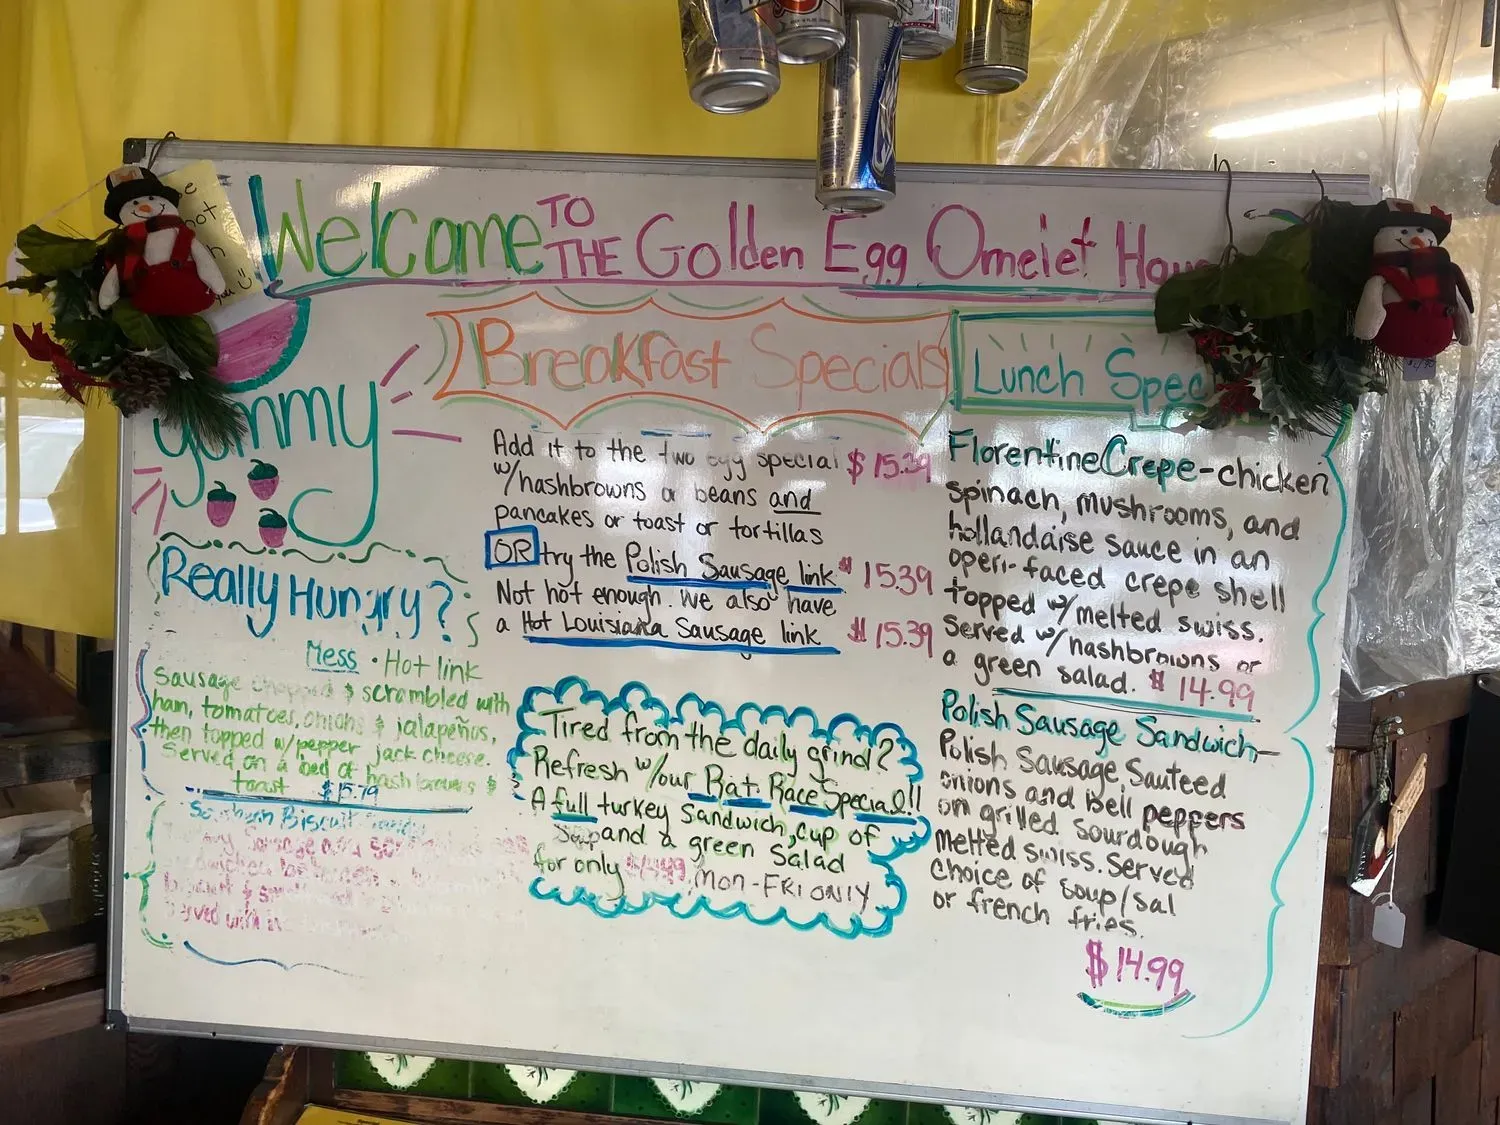 Welcome TO THE Golden Egg Omelet Hou
Yummy
Breakfast Specials
Add it to the two egg special $15.39
w/hashbrowns or beans and
pancakes or toast or tortillas
OR try the Polish Sausage link $15.39
Not hot enough. We also have
a Hot Louisiana Sausage link $15.39
Lunch Spec
Florentine Crepe - chicken
spinach, mushrooms, and
hollandaise sauce in an
open-faced crepe shell
topped w/melted swiss.
Served w/hashbrowns or
a green salad. $14.99
Polish Sausage Sandwich-
Polish Sausage, Sauteed
onions and bell peppers
on grilled sourdough
melted swiss. Served
choice of soup/sal
or french fries.
$14.99
Really Hungry?
Mess • Hot link
Sausage chopped & scrambled with
ham, tomatoes, onions & jalapeños,
then topped w/pepper jack cheese.
Served on a bed of hash browns &
toast $15.79
Southern Biscuit
Sausage
served with
Tired from the daily grind?
Refresh w/our Rat Race Special!!
A full turkey Sandwich, cup of
Soup and a green Salad
for only MON-FRI ONLY